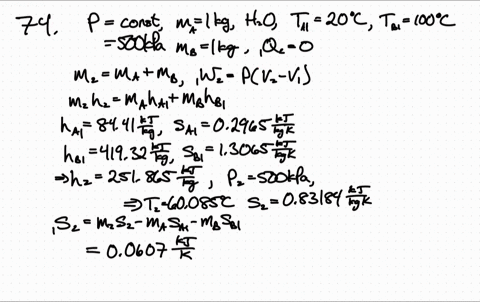 74. P = const, m_A = 1 kg, H₂O, T_A1 = 20°C, T_B1 = 100°C
= 500kPa m_B = 1kg, ₁Q₂ = 0
m₂ = m_A + m_B, ₁W₂ = P(V₂ - V₁)
m₂h₂ = m_A h_A1 + m_B h_B1
h_A1 = 84.41 kJ/kg, S_A1 = 0.2965 kJ/kg K
h_B1 = 419.32 kJ/kg, S_B1 = 1.3065 kJ/kg K
⇒ h₂ = 251.865 kJ/kg, P₂ = 500kPa,
⇒ T₂ = 60.085°C S₂ = 0.83184 kJ/kg K
₁S₂ = m₂S₂ - m_A S_A1 - m_B S_B1
= 0.0607 kJ/K